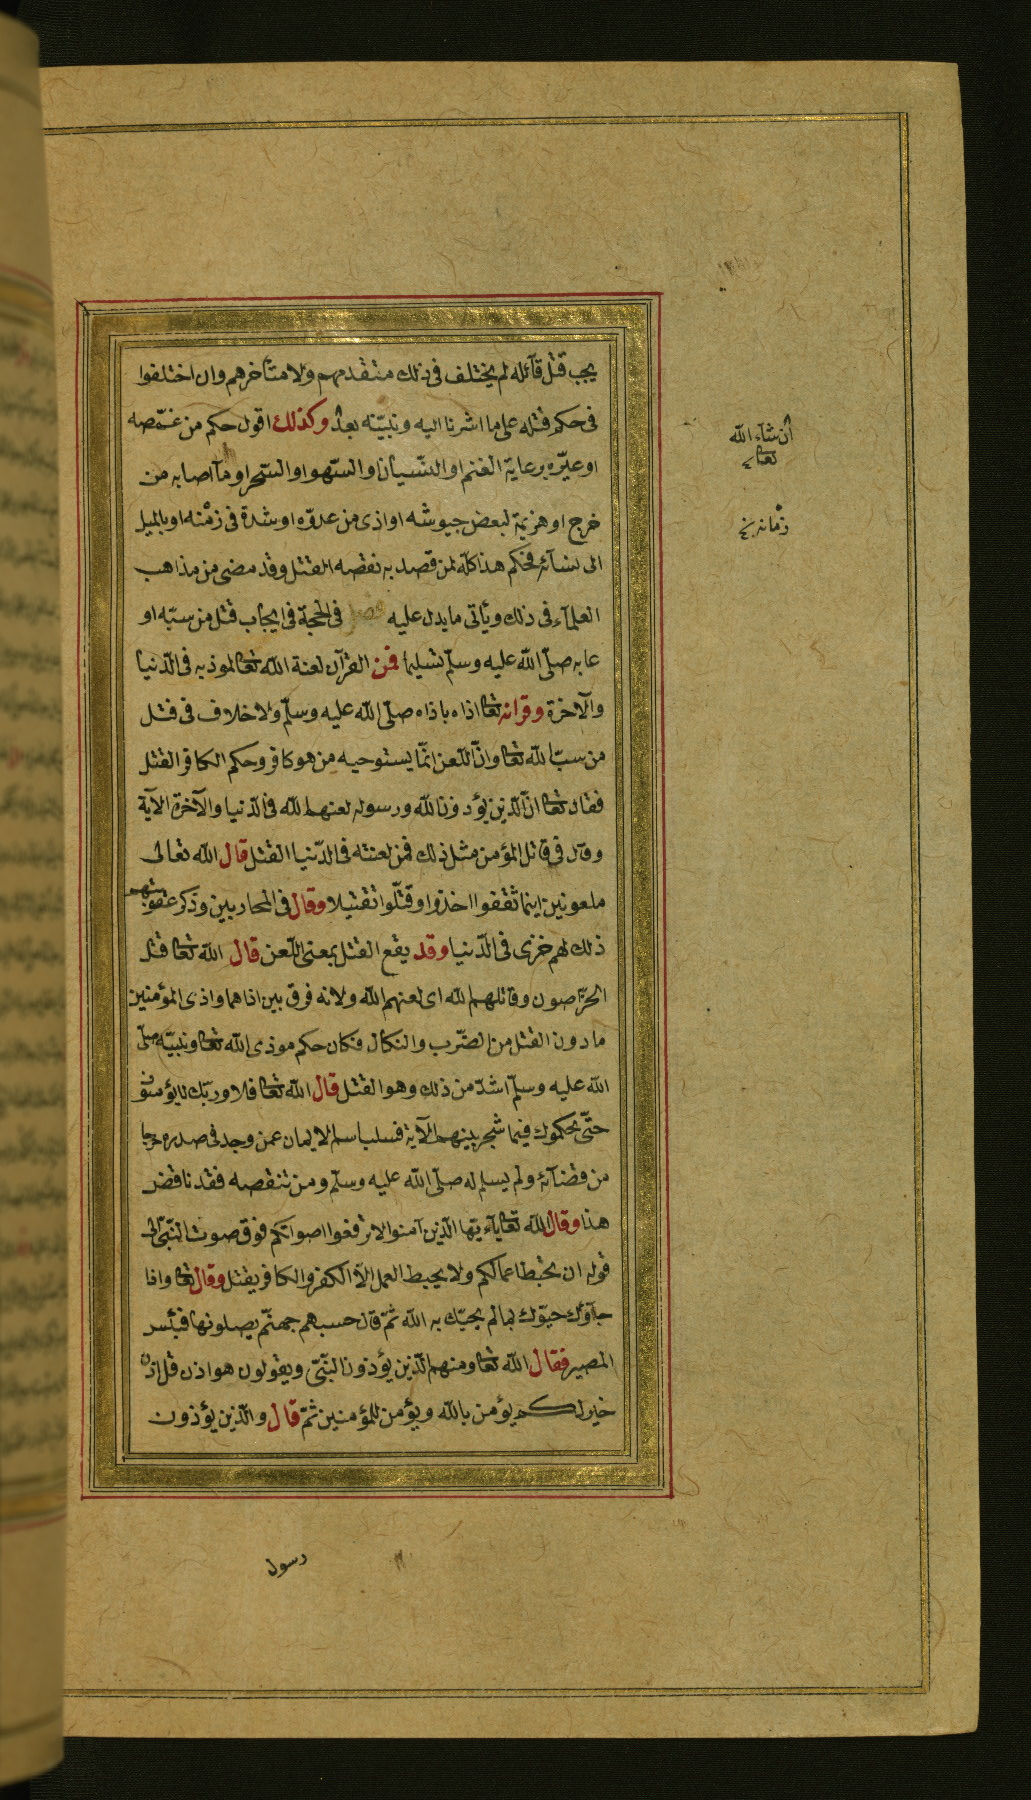 يجب قتل قآئله لم يختلف فى ذلك متقدمهم ولا متأخرهم وان اختلفوا
فى حكم قتله على ما اشرنا اليه ونبيّنه بعد وكذلك اقول حكم من غمّصه
او عيّره برعاية الغنم او النّسيان او السّهو او السّحر او مآ اصابه من
خرج او هزيمة لبعض جيوشه او اذى من عدوّه او شدة فى زمنه او بالميل
الى نسآئه فحكم هذا كلّه لمن قصد به نقصه القتل وقد مضى من مذاهب
العلمآء فى ذلك ويأتى ما يدل عليه فصل فى الحجة فى ايجاب قتل من سبّه او
عابه صلّى الله عليه وسلّم تسليما فمن القرآن لعنة الله تعالى لموذيه فى الدّنيا
والآخرة وقرانه تعالى اذاه باذاه صلّى الله عليه وسلّم ولا خلاف فى قتل
من سبّ الله تعالى وانّ اللّعن انّما يستوجبه من هو كافر وحكم الكافر القتل
فقال تعالى انّ الّذين يؤذون الله ورسوله لعنهم الله فى الدّنيا والآخرة الآية
وقال فى قاتل المؤمن مثل ذلك فمن لعنته فى الدّنيا القتل قال الله تعالى
ملعونين اينما ثقفوا اخذوا وقتّلوا تقتيلا وقال فى المحاربين وذكر عقوبتهم
ذلك لهم خزى فى الدّنيا وقد يقع القتل بمعنى اللّعن قال الله تعالى قتل
الخرّاصون وقاتلهم الله اى لعنهم الله ولانه فرق بين اذاهما واذى المؤمنين
ما دون القتل من الضّرب والنكال فكان حكم موذى الله تعالى ونبيّه صلّى
الله عليه وسلّم اشدّ من ذلك وهو القتل قال الله تعالى فلا وربّك لا يؤمنون
حتّى يحكموك فيما شجر بينهم الآية فسلب اسم الايمان عمن وجد فى صدره حرجا
من قضآئه ولم يسلم له صلّى الله عليه وسلّم ومن تنقصه فقد ناقض
هذا وقال الله تعالى يآءيّها الّذين آمنوا لا ترفعوا اصواتكم فوق صوت النّبىّ الى
قوله ان تحبط اعمالكم ولا يحبط العمل الّا الكفر والكافر يقتل وقال تعالى واذا
جآؤك حيّوك بما لم يحيّك به الله ثمّ قال حسبهم جهنّم يصلونها فبئس
المصير فقال الله تعالى ومنهم الّذين يؤذون النّبىّ ويقولون هو اذن قل اذن
خير لكم يؤمن بالله ويؤمن للمؤمنين ثمّ قال والّذين يؤذون
ان شآء الله
تعالى
زمانه خ
رسول